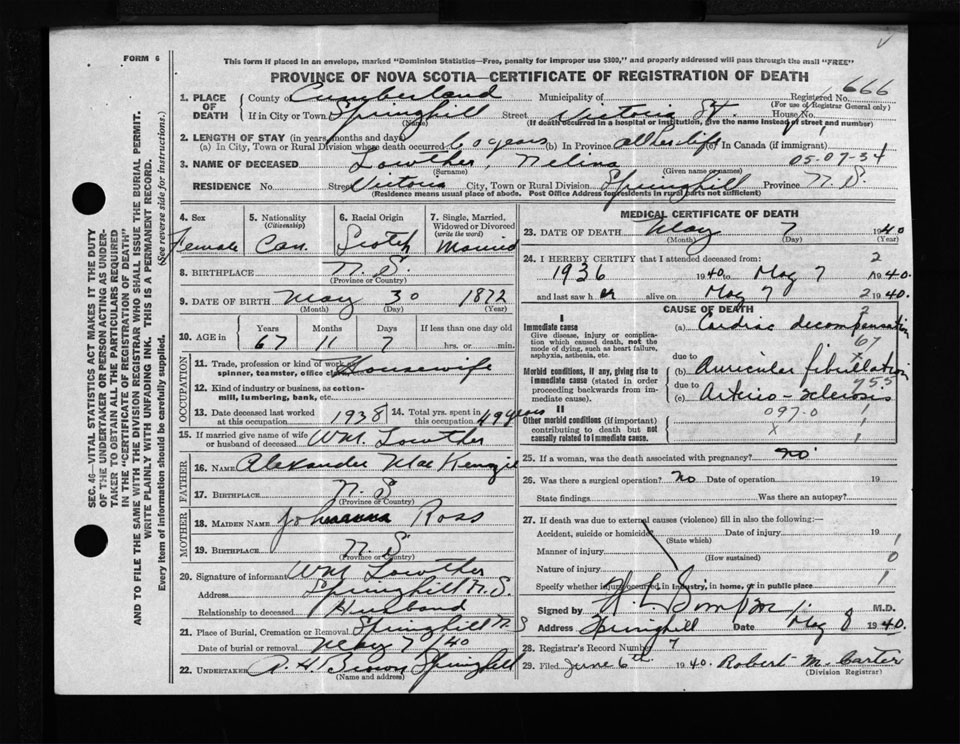 FORM 6
This form if placed in an envelope, marked "Dominion Statistics—Free, penalty for improper use $300," and properly addressed will pass through the mail "FREE"
PROVINCE OF NOVA SCOTIA—CERTIFICATE OF REGISTRATION OF DEATH
Registered No. 666
(For use of Registrar General only)
1. PLACE OF DEATH County of Cumberland Municipality of
If in City or Town Springhill Street Victoria St. House No.
(Name) (If death occurred in a hospital or institution, give the name instead of street and number)
2. LENGTH OF STAY (in years, months and days)
(a) In City, Town or Rural Division where death occurred 60 years (b) In Province all her life (c) In Canada (if immigrant)
3. NAME OF DECEASED Lowther, Nelina 05-07-34
(Surname) (Given name or names)
RESIDENCE No. Street Victoria City, Town or Rural Division Springhill Province N.S.
(Residence means usual place of abode. Post Office Address for residents in rural parts not sufficient)
4. Sex Female
5. Nationality (Citizenship) Can.
6. Racial Origin Scotch
7. Single, Married, Widowed or Divorced (write the word) Married
8. BIRTHPLACE N.S.
(Province or Country)
9. DATE OF BIRTH May 30 1872
(Month) (Day) (Year)
10. AGE in Years Months Days If less than one day old
67 11 7 hrs. or min.
OCCUPATION
11. Trade, profession or kind of work Housewife
spinner, teamster, office
12. Kind of industry or business, as cotton-mill, lumbering, bank, etc.
13. Date deceased last worked at this occupation 1938
14. Total yrs. spent in this occupation 49 years
15. If married give name of wife or husband of deceased Wm Lowther
FATHER
16. Name Alexander MacKenzie
17. Birthplace N.S
(Province or Country)
MOTHER
18. Maiden Name Johanna Ross
19. Birthplace N.S
(Province or Country)
20. Signature of informant Wm Lowther
Address Springhill N.S.
Relationship to deceased Husband
21. Place of Burial, Cremation or Removal Springhill N S
Date of burial or removal May 7/40
22. Undertaker A. H. Brown Springhill
(Name and address)
MEDICAL CERTIFICATE OF DEATH
23. DATE OF DEATH May 7 1940
(Month) (Day) (Year)
24. I HEREBY CERTIFY that I attended deceased from: 2
1936 1940 to May 7 1940.
and last saw her alive on May 7 2 1940.
CAUSE OF DEATH 2
I
Immediate cause
Give disease, injury or complication which caused death, not the mode of dying, such as heart failure, asphyxia, asthenia, etc.
(a) Cardiac decompensation
67
Morbid conditions, if any, giving rise to immediate cause (stated in order proceeding backwards from immediate cause).
due to
(b) Auricular fibrillation
due to 955
(c) Arterio-sclerosis
II
Other morbid conditions (if important) contributing to death but not causally related to immediate cause.
097-0 1
x 1
25. If a woman, was the death associated with pregnancy? no
26. Was there a surgical operation? No Date of operation 19
State findings Was there an autopsy?
27. If death was due to external causes (violence) fill in also the following:—
Accident, suicide or homicide Date of injury 19 1
(State which)
Manner of injury 0
(How sustained)
Nature of injury 1
Specify whether injury occurred in industry, in home, or in public place
Signed by M.D.
Address Springhill Date May 8 1940.
28. Registrar's Record Number 7
29. Filed June 6th 1940. Robert M. Carter
(Division Registrar)
SEC. 46—VITAL STATISTICS ACT MAKES IT THE DUTY
OF THE UNDERTAKER OR PERSON ACTING AS UNDER-
TAKER TO OBTAIN ALL THE PARTICULARS REQUIRED
IN THE "CERTIFICATE OF REGISTRATION OF DEATH"
AND TO FILE THE SAME WITH THE DIVISION REGISTRAR WHO SHALL ISSUE THE BURIAL PERMIT.
WRITE PLAINLY WITH UNFADING INK. THIS IS A PERMANENT RECORD.
Every item of information should be carefully supplied. (See reverse side for instructions.)